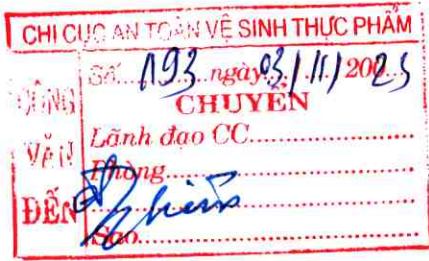 CHI CỤC AN TOÀN VỆ SINH THỰC PHẨM
CÔNG VĂN ĐẾN
Số: 1193 ngày 03/11/2025
CHUYỂN
Lãnh đạo CC..................
Phòng..................
Sao..................